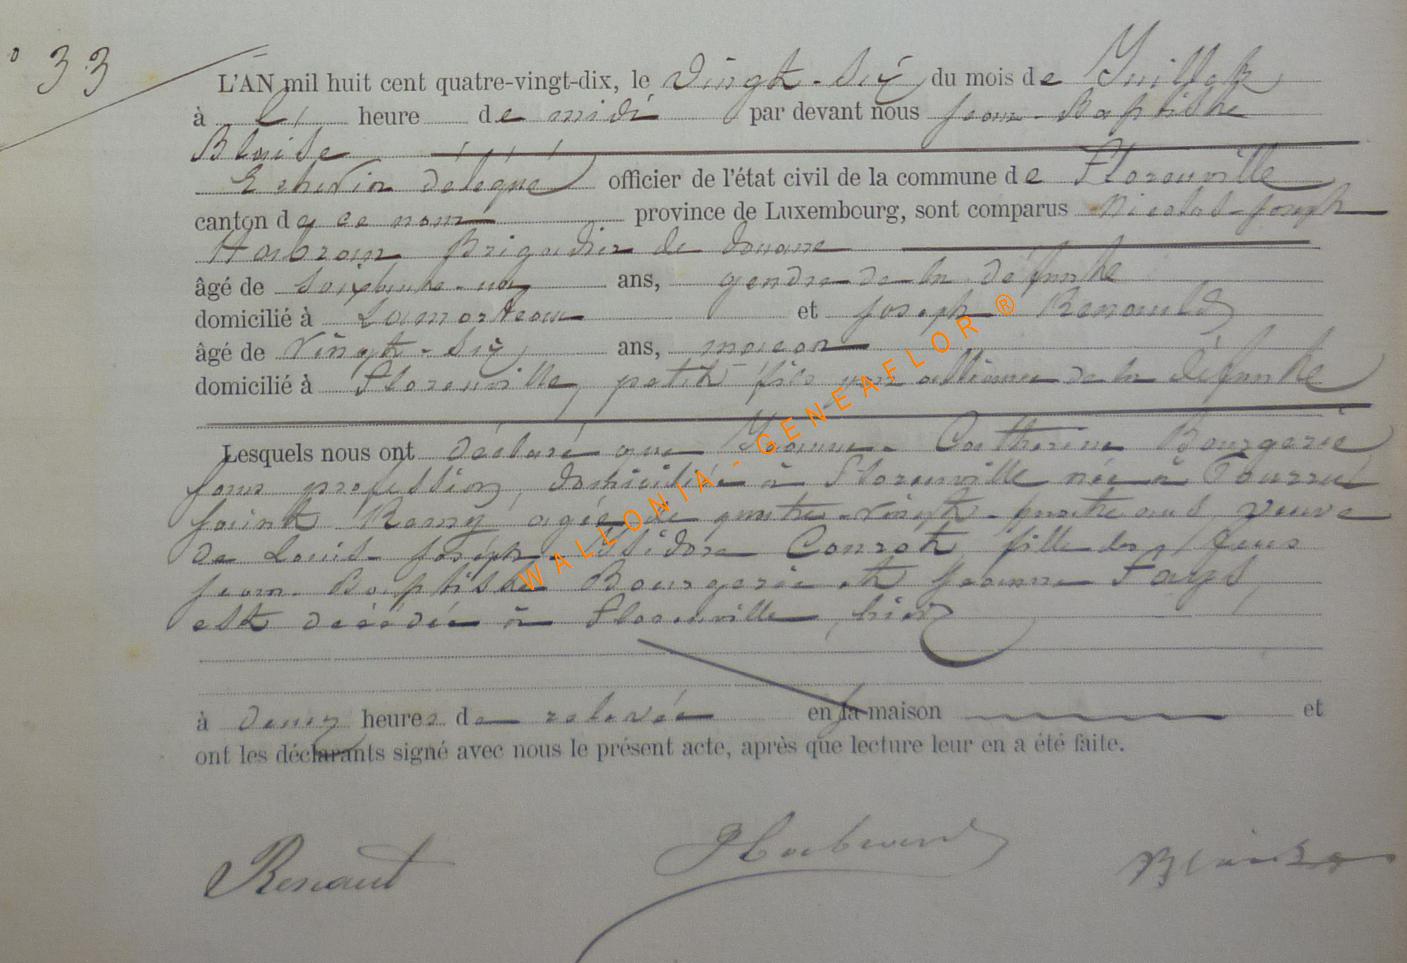 ° 33
L'AN mil huit cent quatre-vingt-dix, le vingt-six du mois de Juillet
à heure de midi par devant nous Jean-Baptiste
Blaise
Echevin délégué officier de l'état civil de la commune de Florenville
canton de ce nom province de Luxembourg, sont comparus Nicolas-Joseph
Habran Brigadier de douane
âgé de soixante-un ans, gendre de la défunte
domicilié à Lamorteau et Joseph Renauld
âgé de vingt-six ans, maçon
domicilié à Florenville, petit-fils par alliance de la défunte
Lesquels nous ont déclaré que Jeanne-Catherine Bourgerie
sans profession, domiciliée à Florenville née à Pourru
Saint Remy, agée de quatre-vingt-quatre ans, veuve
de Louis-Joseph-Isidore Conrot, fille des feus
Jean-Baptiste Bourgerie et Jeanne Fays,
est décédée à Florenville, hier
à deux heures de relevée en sa maison et
ont les déclarants signé avec nous le présent acte, après que lecture leur en a été faite.
Renaut Habran Blaise
WALLONIA - GENEAFLOR ®